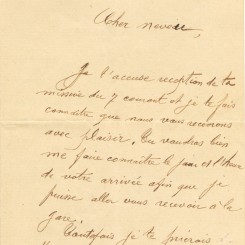 Cher neveu,
Je t'accuse reception de ta
missive du 7 courant et je te fais
connaitre que nous vous recevrons
avec plaisir. Tu voudras bien
me faire connaître le jour et l'heure
de votre arrivée afin que je
puisse aller vous recevoir à la
gare.
Toutefois je te